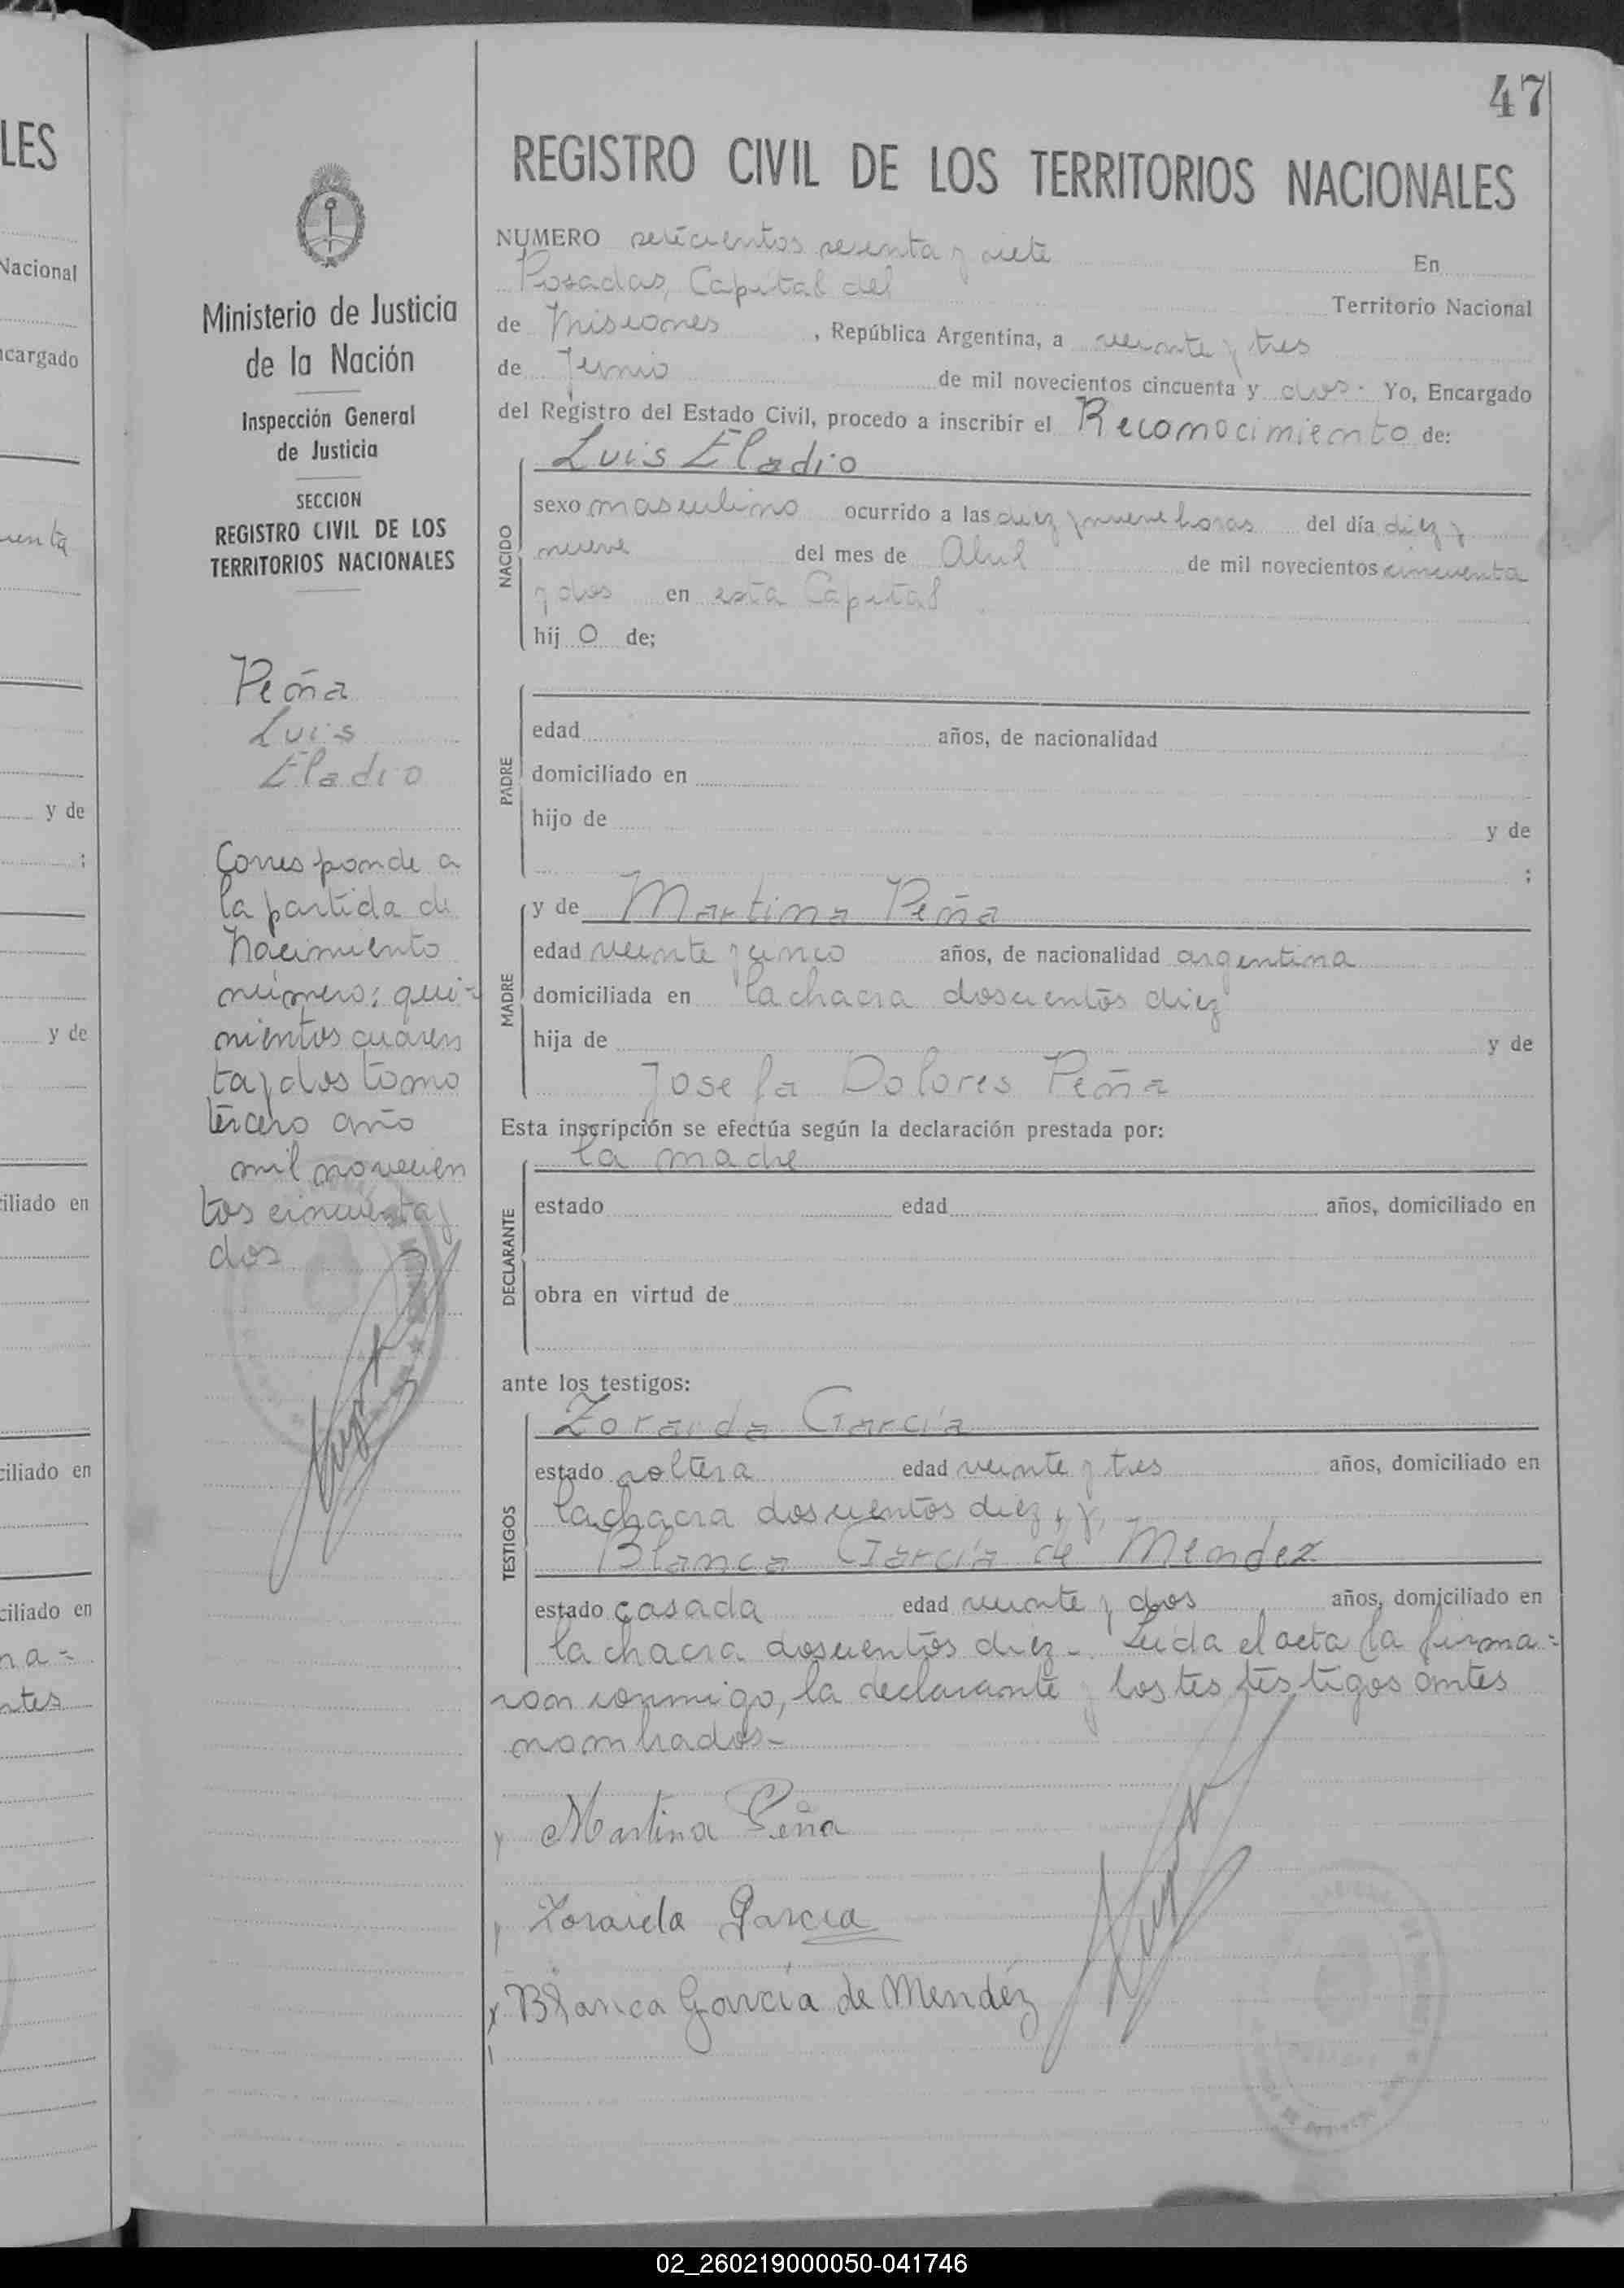 LES
Nacional
cargado
enta
y de
;
y de
ciliado en
ciliado en
ciliado en
na=
ntes
Ministerio de Justicia
de la Nación
Inspección General
de Justicia
SECCION
REGISTRO CIVIL DE LOS
TERRITORIOS NACIONALES
Peña
Luis
Eladio
Corresponde a
la partida de
Nacimiento
número: qui-
nientos cuaren
ta y dos tomo
tercero año
mil novecien
tos cincuenta y
dos
47
REGISTRO CIVIL DE LOS TERRITORIOS NACIONALES
NUMERO seticientos sesenta y siete En
Posadas, Capital del Territorio Nacional
de Misiones, República Argentina, a veinte y tres
de Junio de mil novecientos cincuenta y dos. Yo, Encargado
del Registro del Estado Civil, procedo a inscribir el Reconocimiento de:
Luis Eladio
NACIDO
sexo masculino ocurrido a las diez y nueve horas del día diez y
nueve del mes de Abril de mil novecientos cincuenta
y dos en esta Capital.
hij o de;
PADRE
edad años, de nacionalidad
domiciliado en
hijo de y de
;
MADRE
y de Martina Peña
edad veinte y cinco años, de nacionalidad argentina
domiciliada en la chacra doscientos diez
hija de y de
Josefa Dolores Peña
Esta inscripción se efectúa según la declaración prestada por:
la madre
DECLARANTE
estado edad años, domiciliado en
obra en virtud de
ante los testigos:
TESTIGOS
Zoraida García
estado soltera edad veinte y tres años, domiciliado en
la chacra doscientos diez, y,
Blanca García de Mendez
estado casada edad veinte y dos años, domiciliado en
la chacra doscientos diez-. Leida el acta la firma=
ron conmigo, la declarante y los tes testigos antes
nombrados-
Martina Peña
Zoraida Garcia
x Blanca García de Mendéz
02_260219000050-041746